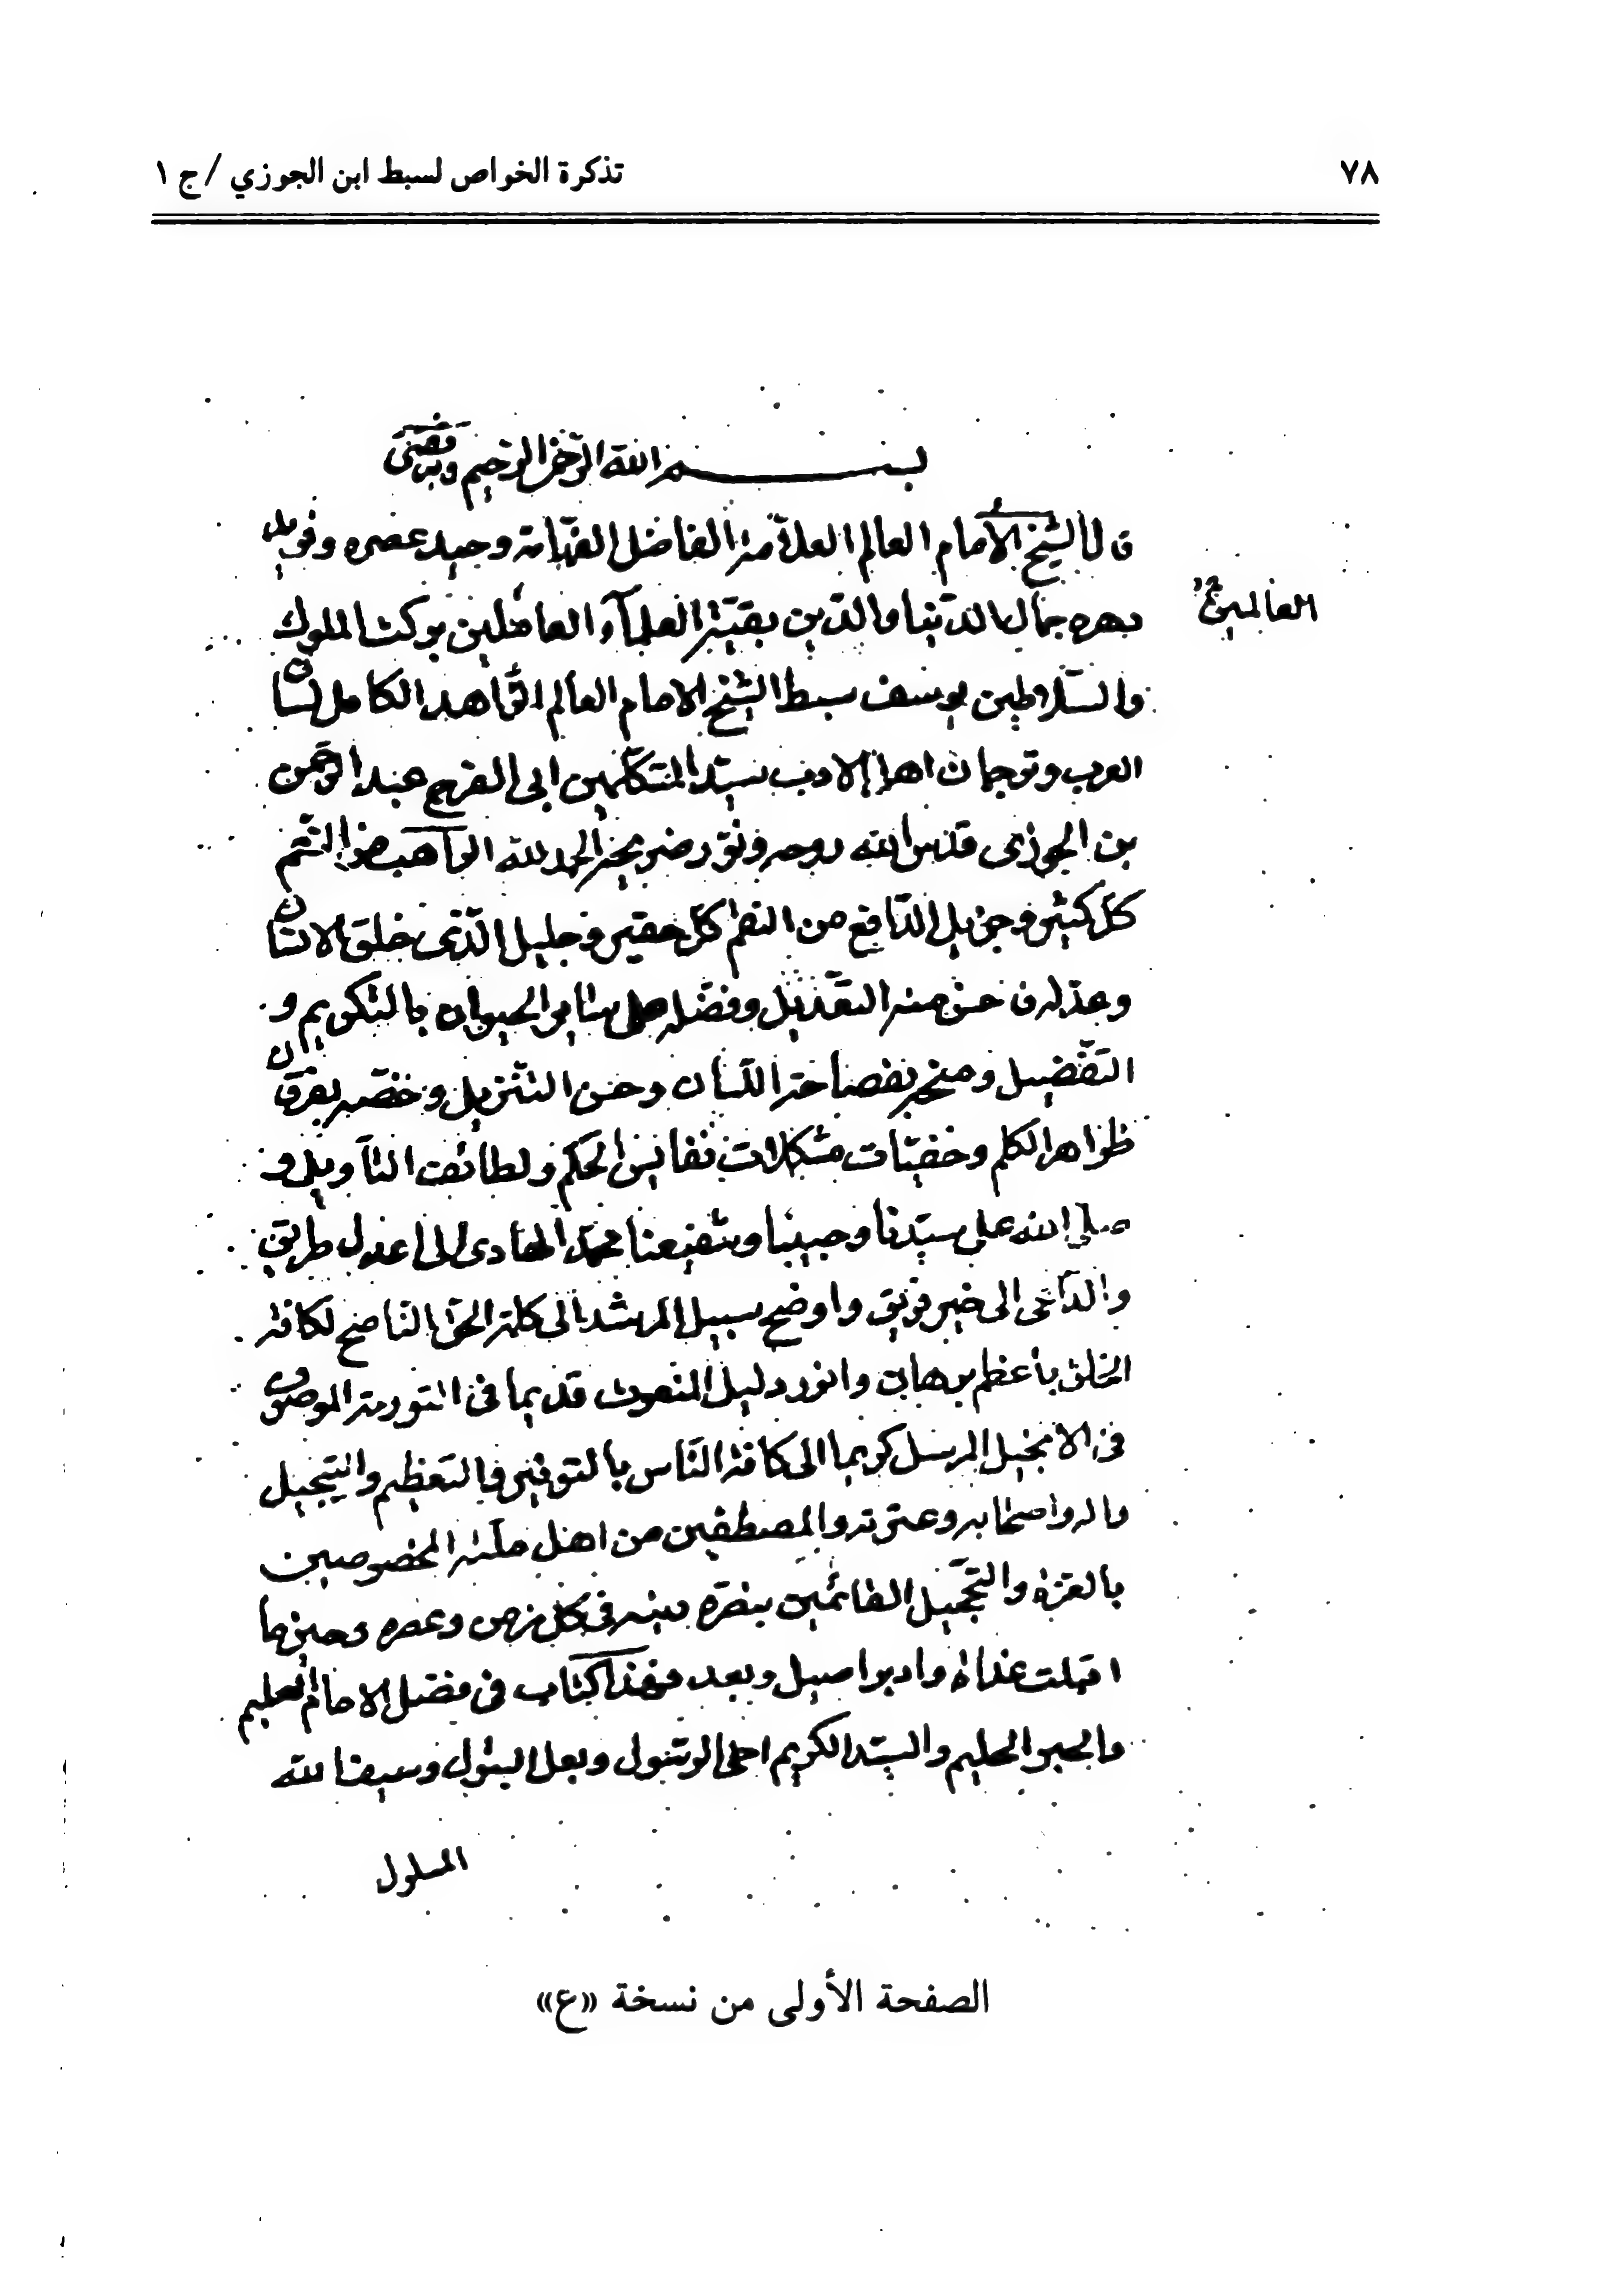 ٧٨
تذكرة الخواص لسبط ابن الجوزي / ج ١
بسم الله الرحمن الرحيم وبه ثقتى
قال الشيخ الأمام العالم العلامة الفاضل الفهامة وحيد عصره وفريد
دهره جمال الدنيا والدين بقية العلمآء العاملين بركت الملوك
العالمين
والسلاطين يوسف سبط الشيخ الامام العالم الزاهد الكامل لسان
العرب وترجمان اهل الادب سيد المتكلمين ابى الفرج عبد الرحمن
بن الجوزى قدس الله روحه ونور ضريحه الحمد لله الواهب من النعم
كل كثير وجزيل الدافع من النقم كل حقير وجليل الذى خلق الانسان
وعدله فى حسن التعديل وفضله على سائر الحيوان بالتكريم و
التفضيل ومنحه بفصاحة اللسان وحسن التنزيل وخصه بعرفان
ظواهر الكلم وخفيات مشكلات نفايس الحكم ولطائف التأويل و
صلى الله على سيدنا وحبيبنا وشفيعنا محمد الهادى الى اعدل طريق
والداعى الى خير فريق واوضح سبيل المرشد الى كلمة الحق الناصح لكافة
الخلق بأعظم برهان وانور دليل المنعوت قديما فى التورية الموصوف
فى الانجيل المرسل كريما الى كافة الناس بالتوقير والتعظيم والتبجيل
واله واصحابه وعترته والمصطفين من اهل ملته المخصوصين
بالعزة والتبجيل القائمين بنصرة دينه فى كل زمن وعصر وحين ما
اقبلت غداة وادبر اصيل وبعد فهذا كتاب فى فضل الامام العليم
والحبر الحليم والسيد الكريم اخى الرسول وبعل البتول وسيف الله
المسلول
الصفحة الأولى من نسخة «ع»